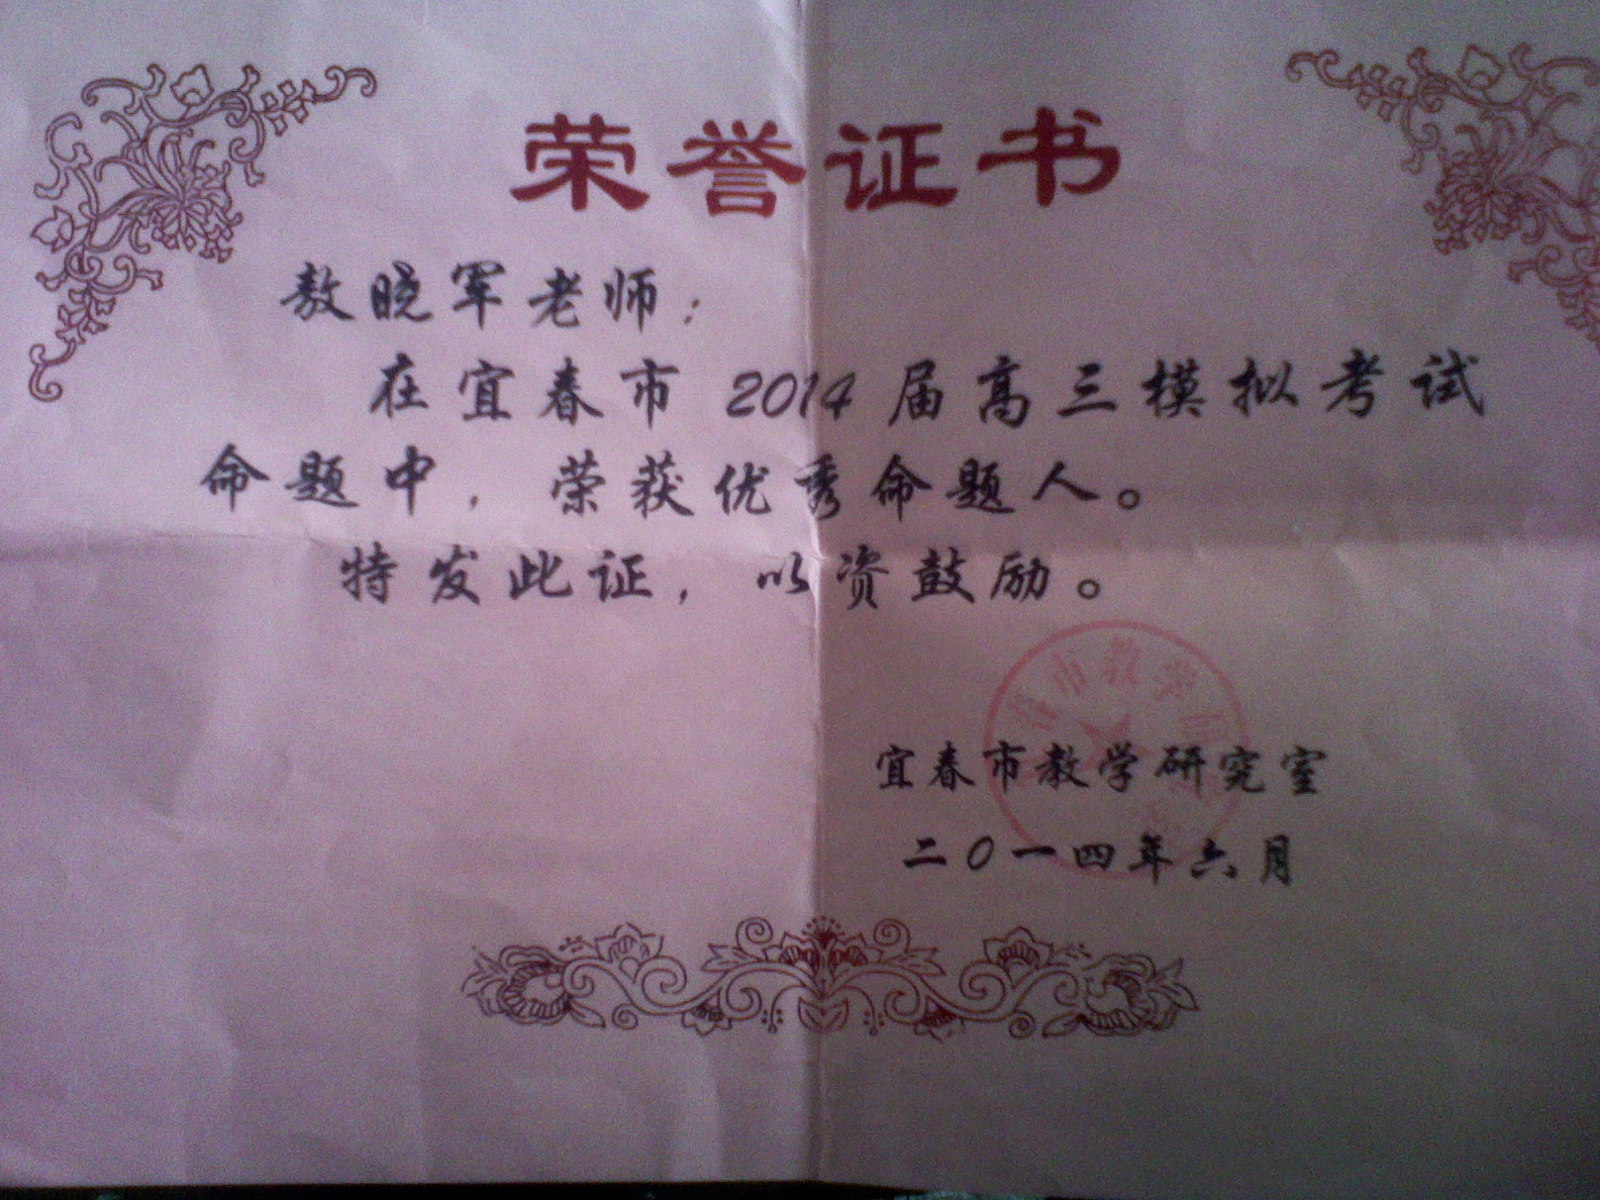 荣誉证书
敖晓军老师：
在宜春市 2014 届高三模拟考试
命题中，荣获优秀命题人。
特发此证，以资鼓励。
宜春市教学研究室
二0一四年六月